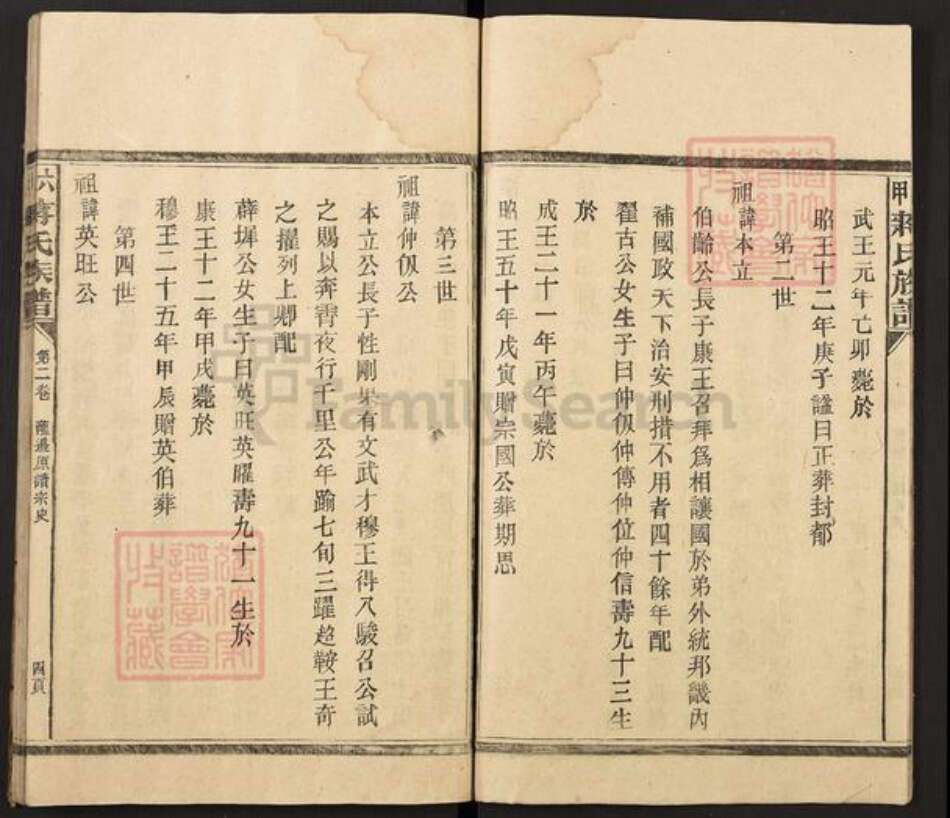 蔣氏族譜
武王元年乙卯薨於
昭王十二年庚子諡曰正葬封都
第二世
祖諱本立
伯齡公長子康王召拜爲相讓國於弟外統邦畿內
補國政天下治安刑措不用者四十餘年配
翟古公女生子曰仲伋仲傳仲位仲信壽九十三生
於
成王二十一年丙午薨於
昭王五十年戊寅贈宗國公葬期思
第三世
祖諱仲伋公
本立公長子性剛果有文武才穆王得八駿召公試
之賜以奔霄夜行千里公年踰七旬三躍超鞍王奇
之擢列上卿配
薛墀公女生子曰英旺英曜壽九十一生於
康王十二年甲戌薨於
穆王二十五年甲辰贈英伯葬
第四世
祖諱英旺公
蔣氏族譜
第二卷
原讀宗史
四頁
譜學會
收藏
FamilySearch